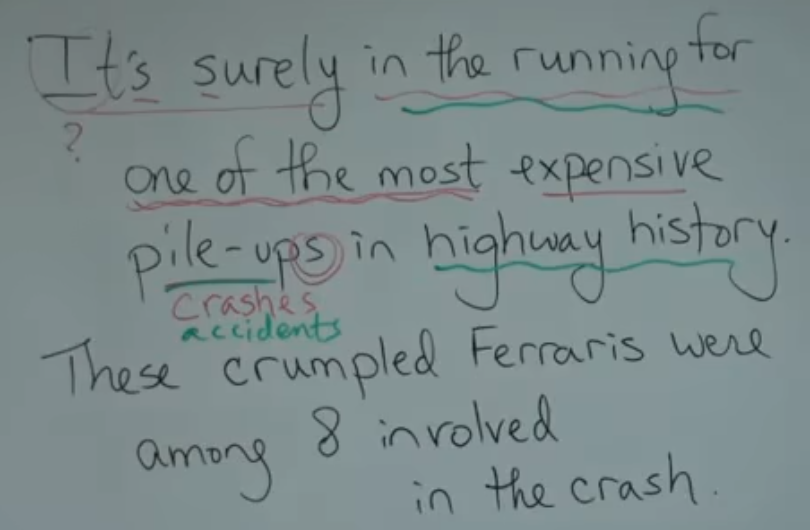 It's surely in the running for
?
one of the most expensive
pile-ups in highway history.
crashes
accidents
These crumpled Ferraris were
among 8 involved
in the crash.